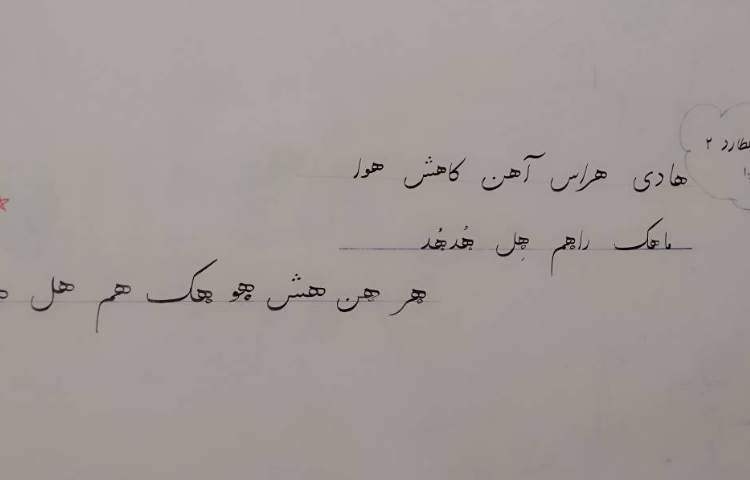 هادی هراس آهن کاهش هوا
ماهک راهم هِل هُدهُد
هر هن هش هو هک هم هل